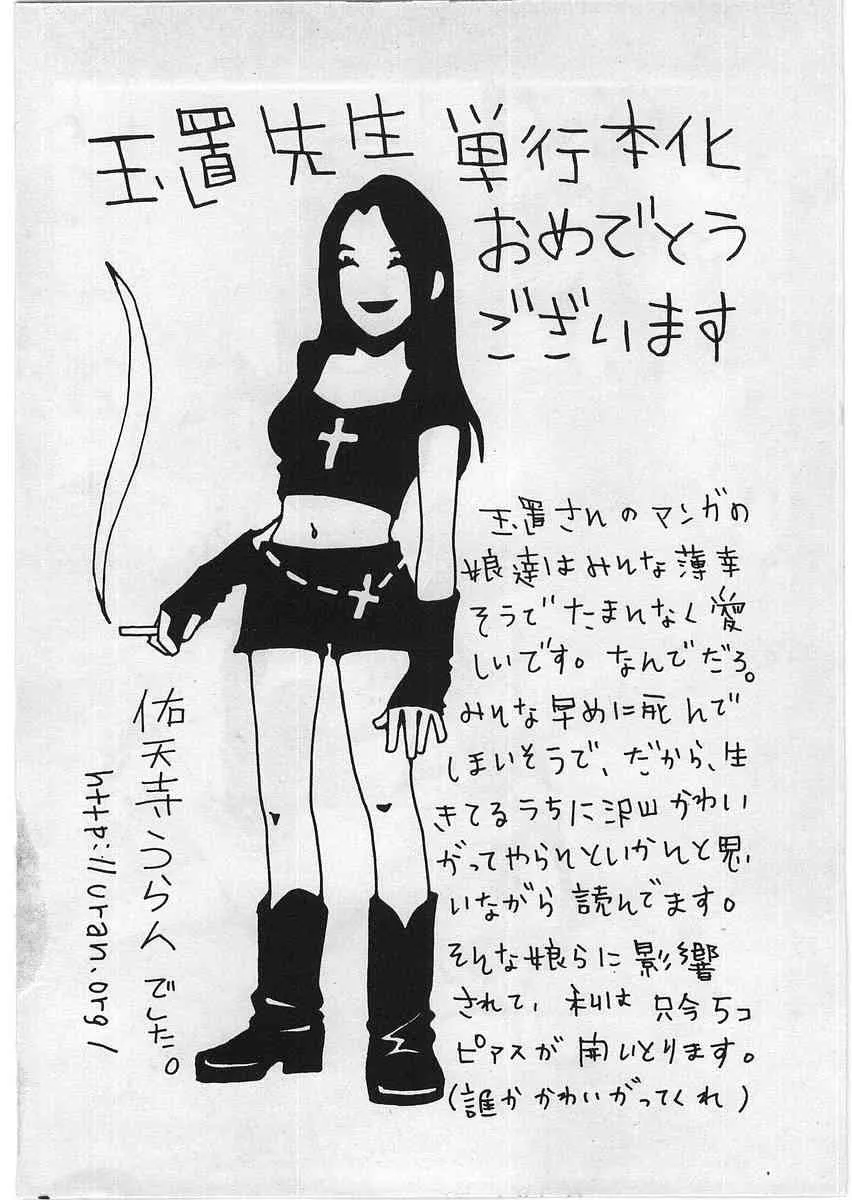 玉置先生 単行本化
おめでとう
ございます
玉置さんのマンガの
娘達はみんな薄幸
そうでたまれなく愛
しいです。なんでだろ。
みんな早めに死んで
しまいそうで、だから、生
きてるうちに沢山かわい
がってやられといかんと思
いながら読んでます。
そんな娘らに影響
されて、私は只今5コ
ピアスが開いとります。
(誰かかわいがってくれ)
佑天寺うらんでした。
http://uran.org/